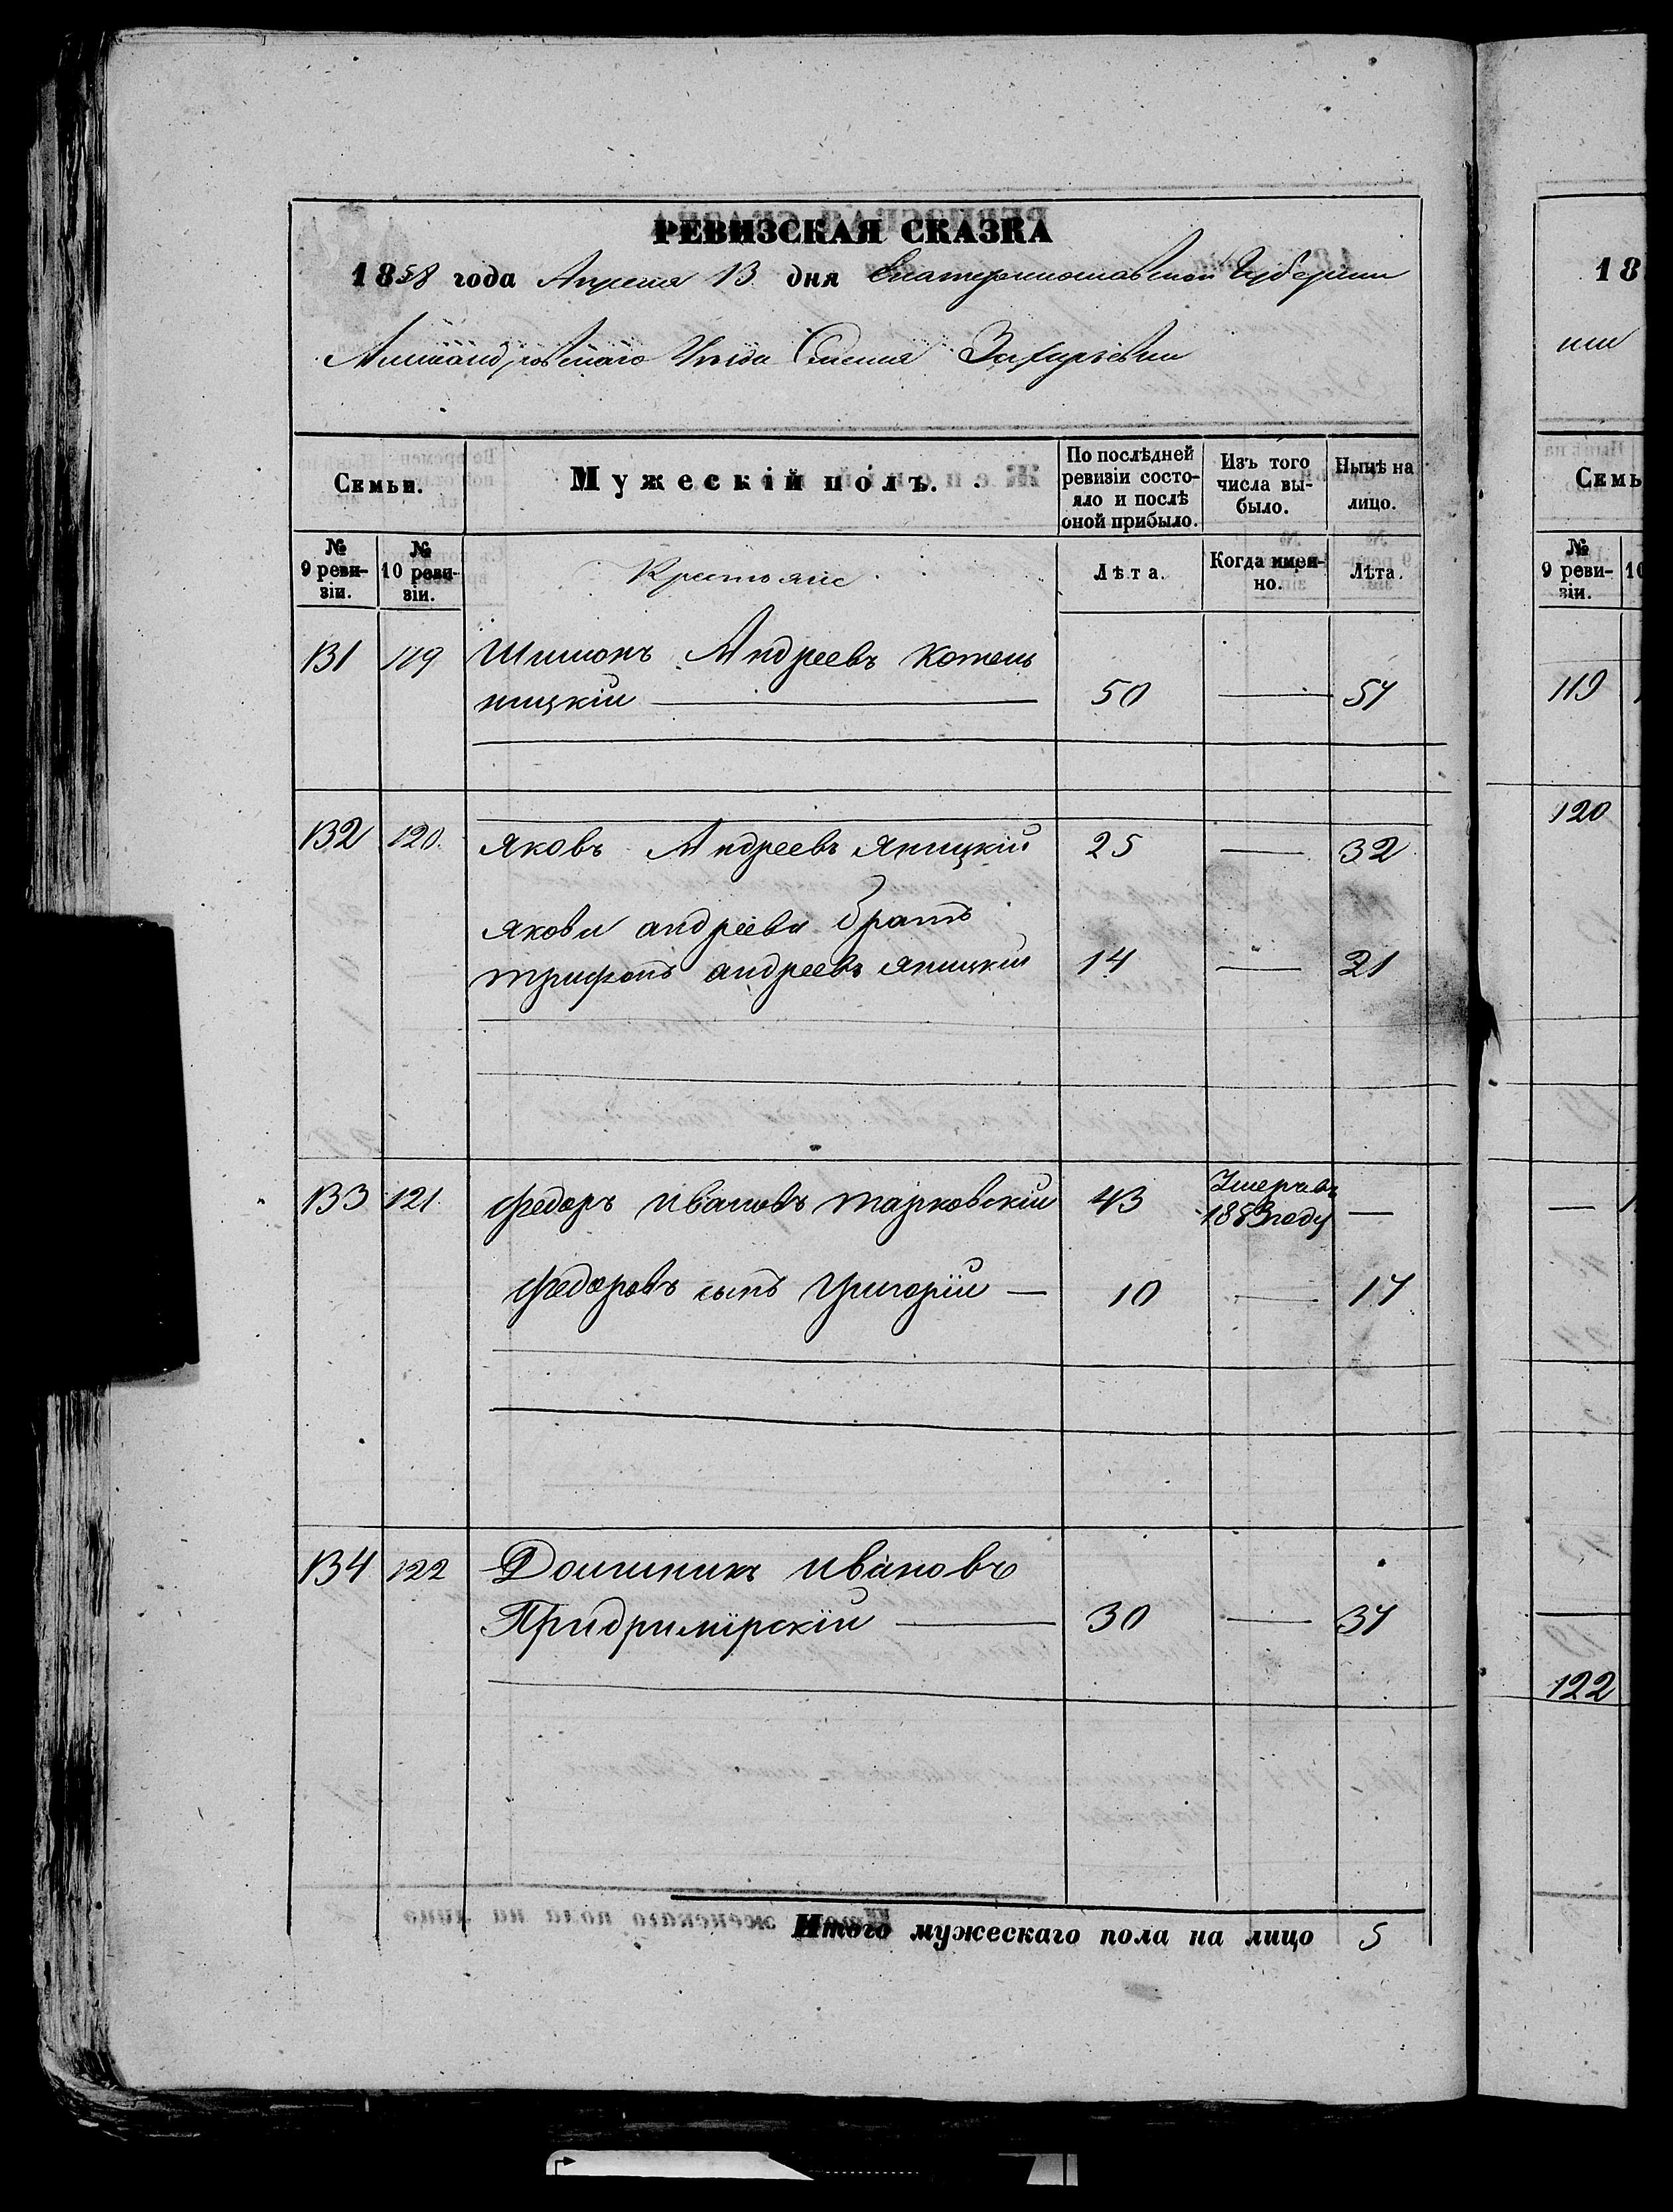 РЕВИЗСКАЯ СКАЗКА
1858 года Апреля 13 дня Екатеринославской Губернии
Александровскаго Уезда Селения Захарьевки
Семьи.
Мужескій полъ.
По послѣдней
ревизіи состо-
яло и послѣ
оной прибыло.
Изъ того
числа вы-
было.
Нынѣ на
лицо.
№
9 реви-
зіи.
№
10 реви-
зіи.
Крестьяне
Лѣта.
Когда имен-
но.
Лѣта.
131 119 Шимонъ Андреевъ Котель
ницкій — 50 — 57
132 120. Яковъ Андреевъ Яницкій 25 — 32
Якова андреева братъ
трифонъ андреевъ яницкій 14 — 21
133 121. федоръ ивановъ тарковскій 43 Умер въ —
1853 году
федоровъ сынъ григорій — 10 — 17
134 122 Доминикъ ивановъ
Придримірскій — 30 — 37
Итого мужескаго пола на лицо 5
18
нии
Семь
№
9 реви-
зіи.
10
119
120
—
122